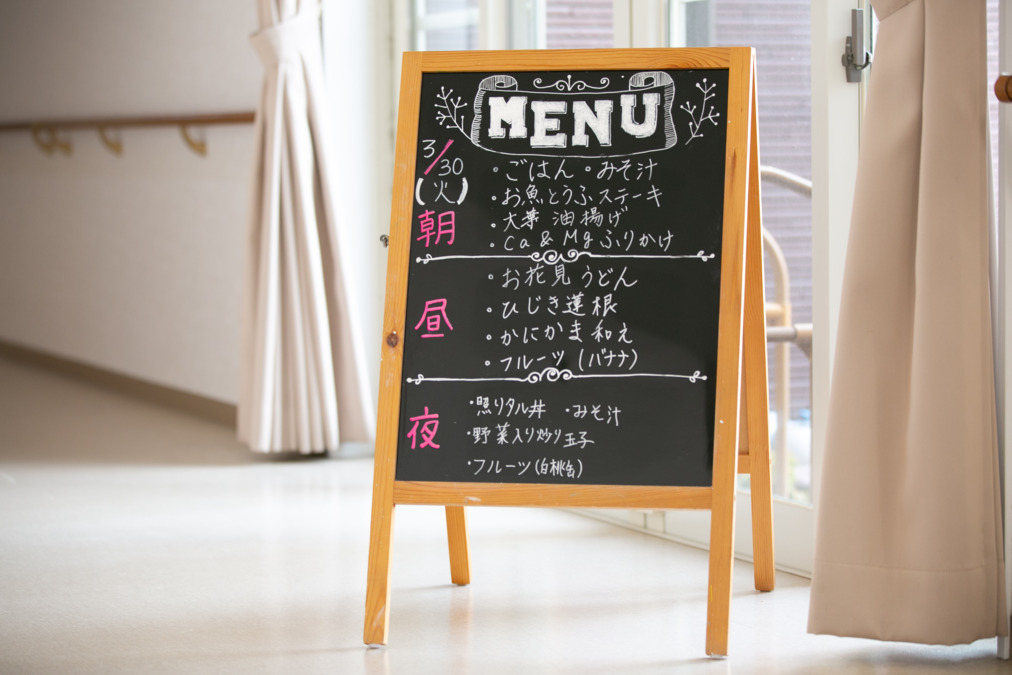 MENU
3/30
(火)
朝
・ごはん ・みそ汁
・お魚とうふステーキ
・大葉 油揚げ
・Ca & Mg ふりかけ
昼
・お花見うどん
・ひじき蓮根
・かにかま和え
・フルーツ(バナナ)
夜
・照りタル丼 ・みそ汁
・野菜入り炒り玉子
・フルーツ(白桃缶)